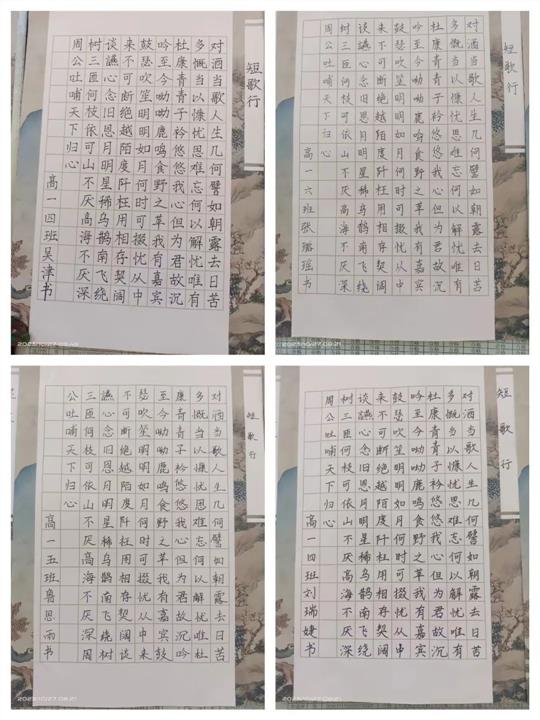 短歌行
对酒当歌人生几何譬如朝露去日苦
多慨当以慷忧思难忘何以解忧唯有
杜康青青子衿悠悠我心但为君故沉
吟至今呦呦鹿鸣食野之苹我有嘉宾
鼓瑟吹笙明明如月何时可掇忧从中
来不可断绝越陌度阡枉用相存契阔
谈讌心念旧恩月明星稀乌鹊南飞绕
树三匝何枝可依山不厌高海不厌深
周公吐哺天下归心
高一四班吴津书
短歌行
对酒当歌人生几何譬如朝露去日苦
多慨当以慷忧思难忘何以解忧唯有
杜康青青子衿悠悠我心但为君故沉
吟至今呦呦鹿鸣食野之苹我有嘉宾
鼓瑟吹笙明明如月何时可掇忧从中
来不可断绝越陌度阡枉用相存契阔
谈讌心念旧恩月明星稀乌鹊南飞绕
树三匝何枝可依山不厌高海不厌深
周公吐哺天下归心
高一六班张璐瑶书
短歌行
对酒当歌人生几何譬如朝露去日苦
多慨当以慷忧思难忘何以解忧唯有杜
康青青子衿悠悠我心但为君故沉吟
至今呦呦鹿鸣食野之苹我有嘉宾鼓
瑟吹笙明明如月何时可掇忧从中来
不可断绝越陌度阡枉用相存契阔谈
讌心念旧恩月明星稀乌鹊南飞绕树
三匝何枝可依山不厌高海不厌深周
公吐哺天下归心
高一五班鲁恩雨书
短歌行
对酒当歌人生几何譬如朝露去日苦
多慨当以慷忧思难忘何以解忧唯有
杜康青青子衿悠悠我心但为君故沉
吟至今呦呦鹿鸣食野之苹我有嘉宾
鼓瑟吹笙明明如月何时可掇忧从中
来不可断绝越陌度阡枉用相存契阔
谈讌心念旧恩月明星稀乌鹊南飞绕
树三匝何枝可依山不厌高海不厌深
周公吐哺天下归心
高一四班刘瑞婕书